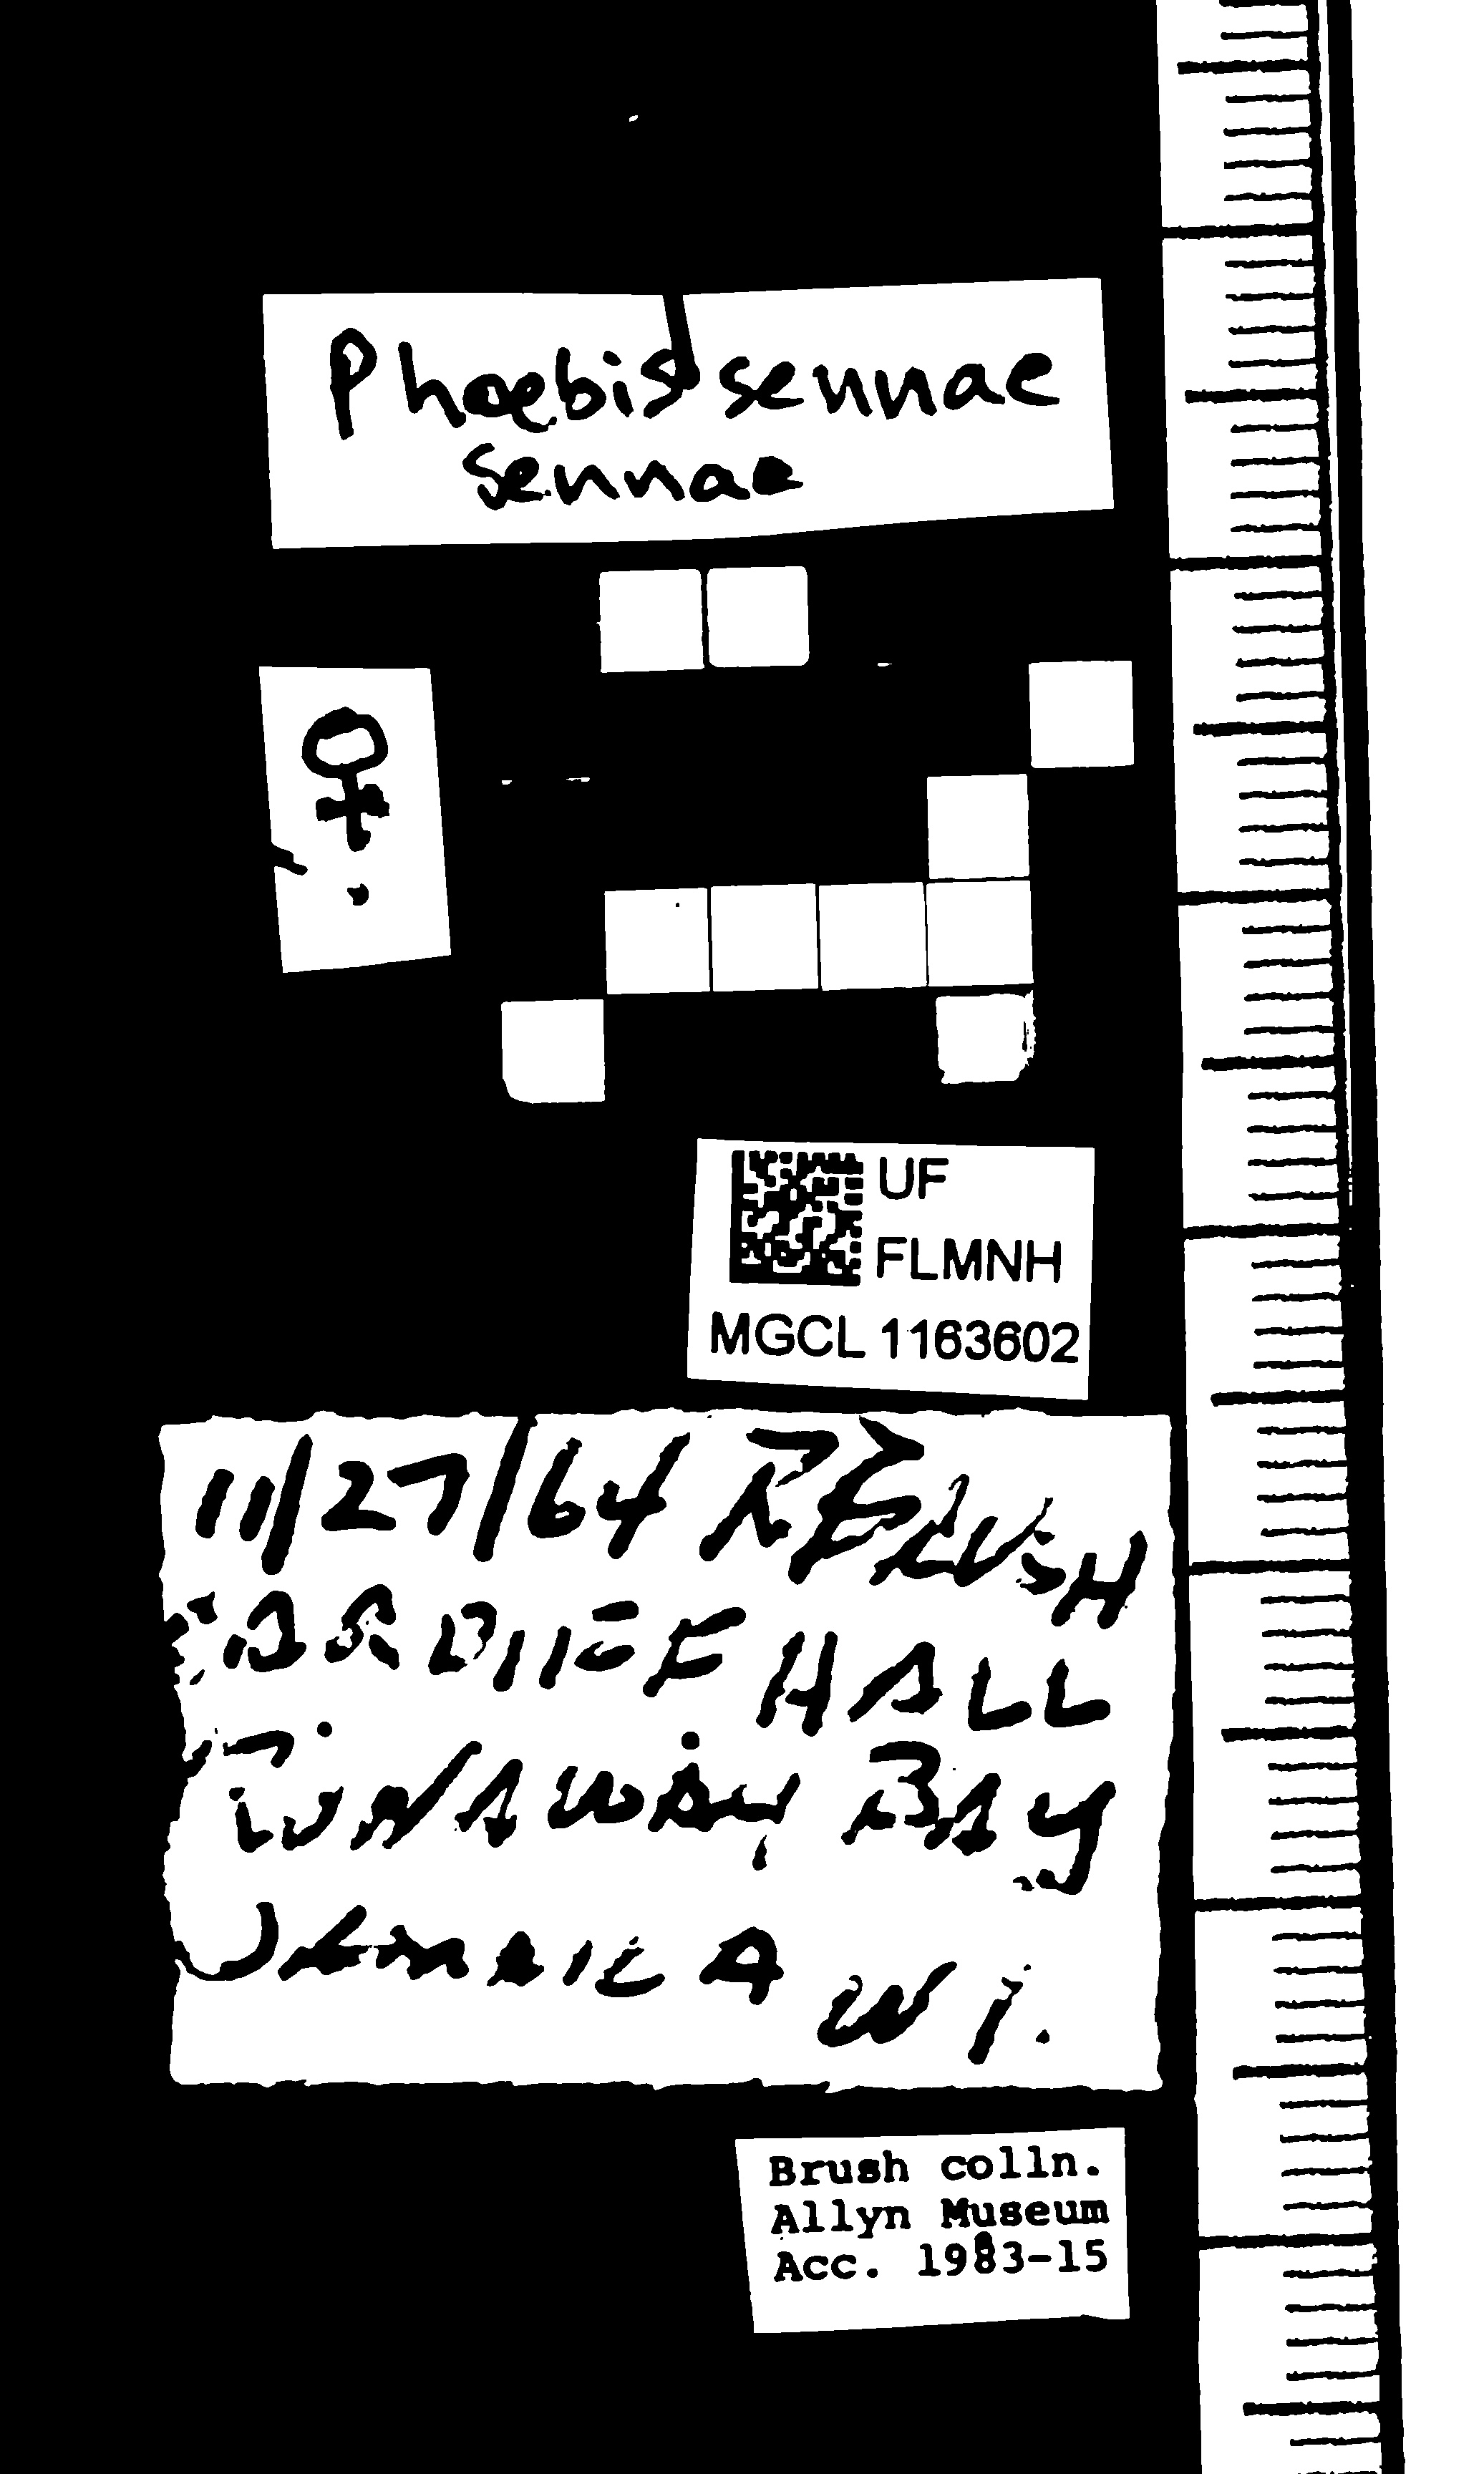 Phoebis sennae
sennae
♀
UF
FLMNH
MGCL 1163602
11/27/64 R BRUSH
HALL
RUNAWAY BAY
JAMAICA W I.
Brush colln.
Allyn Museum
Acc. 1983-15